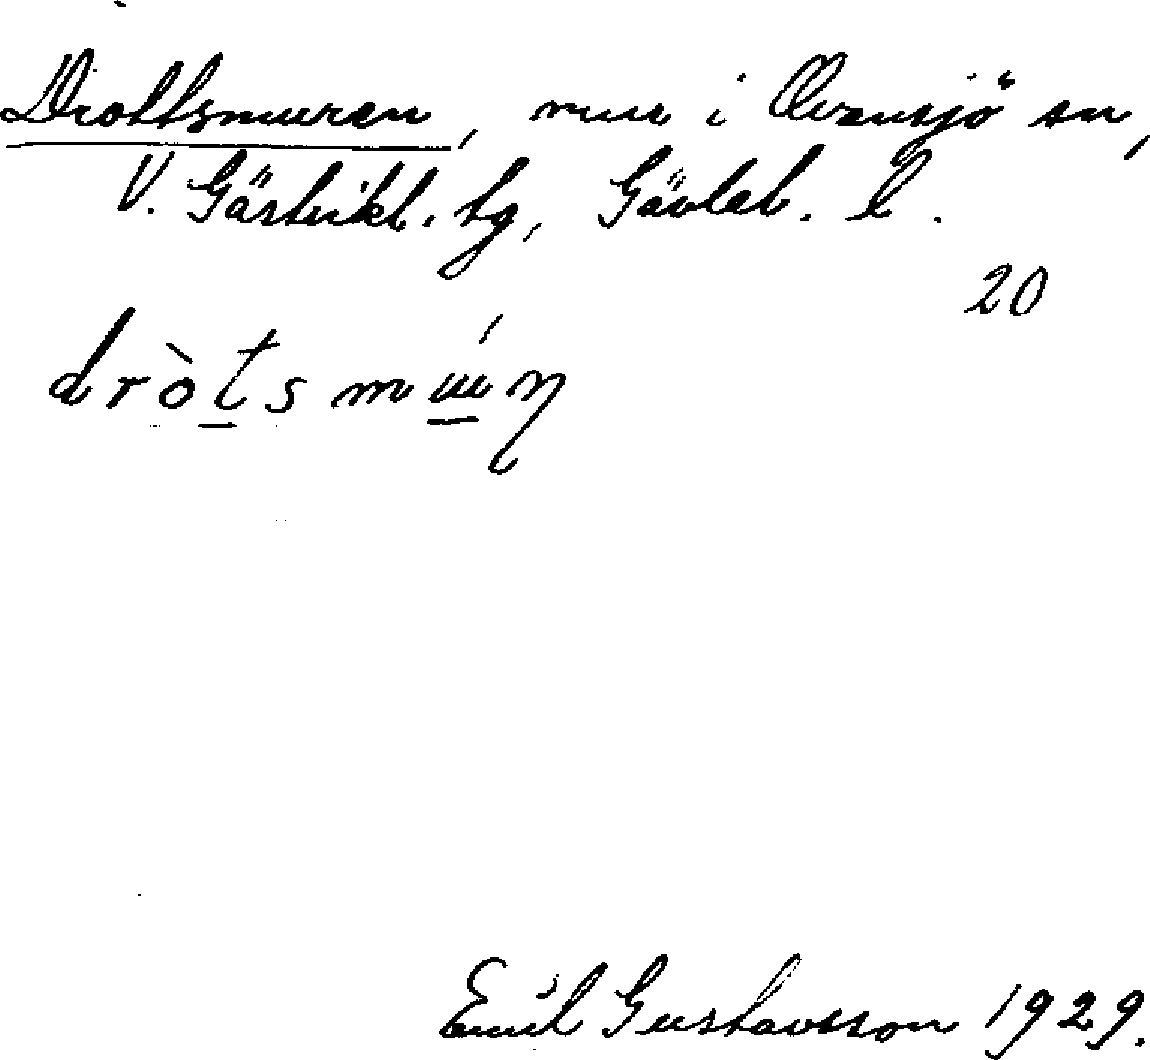 Drottsmuren, mur i Ovansjö sn,
V. Gästrikl. tg, Gävleb. l.
20
dròtsmɯ́ŋ
Emil Gustavsson 1929.